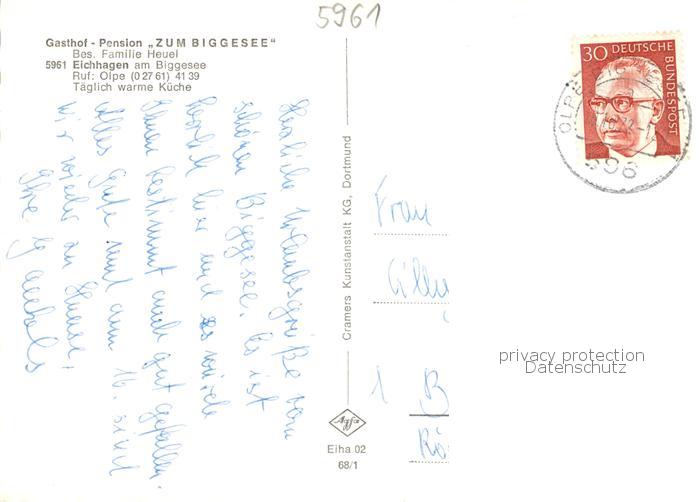 5961
Gasthof - Pension „ZUM BIGGESEE"
Bes. Familie Heuel
5961 Eichhagen am Biggesee
Ruf: Olpe (0 27 61) 41 39
Täglich warme Küche
Herzliche Urlaubsgrüße vom
schönen Biggesee. Es ist
herrlich hier und es würde
Ihnen bestimmt auch gut gefallen.
Alles Gute und am 16. sind
wir wieder zu Hause.
Ihre
Cramers Kunstanstalt KG, Dortmund
Agfa
Eiha. 02
68/1
30 DEUTSCHE BUNDESPOST
OLPE
596
Frau
1 B
Rö
privacy protection
Datenschutz